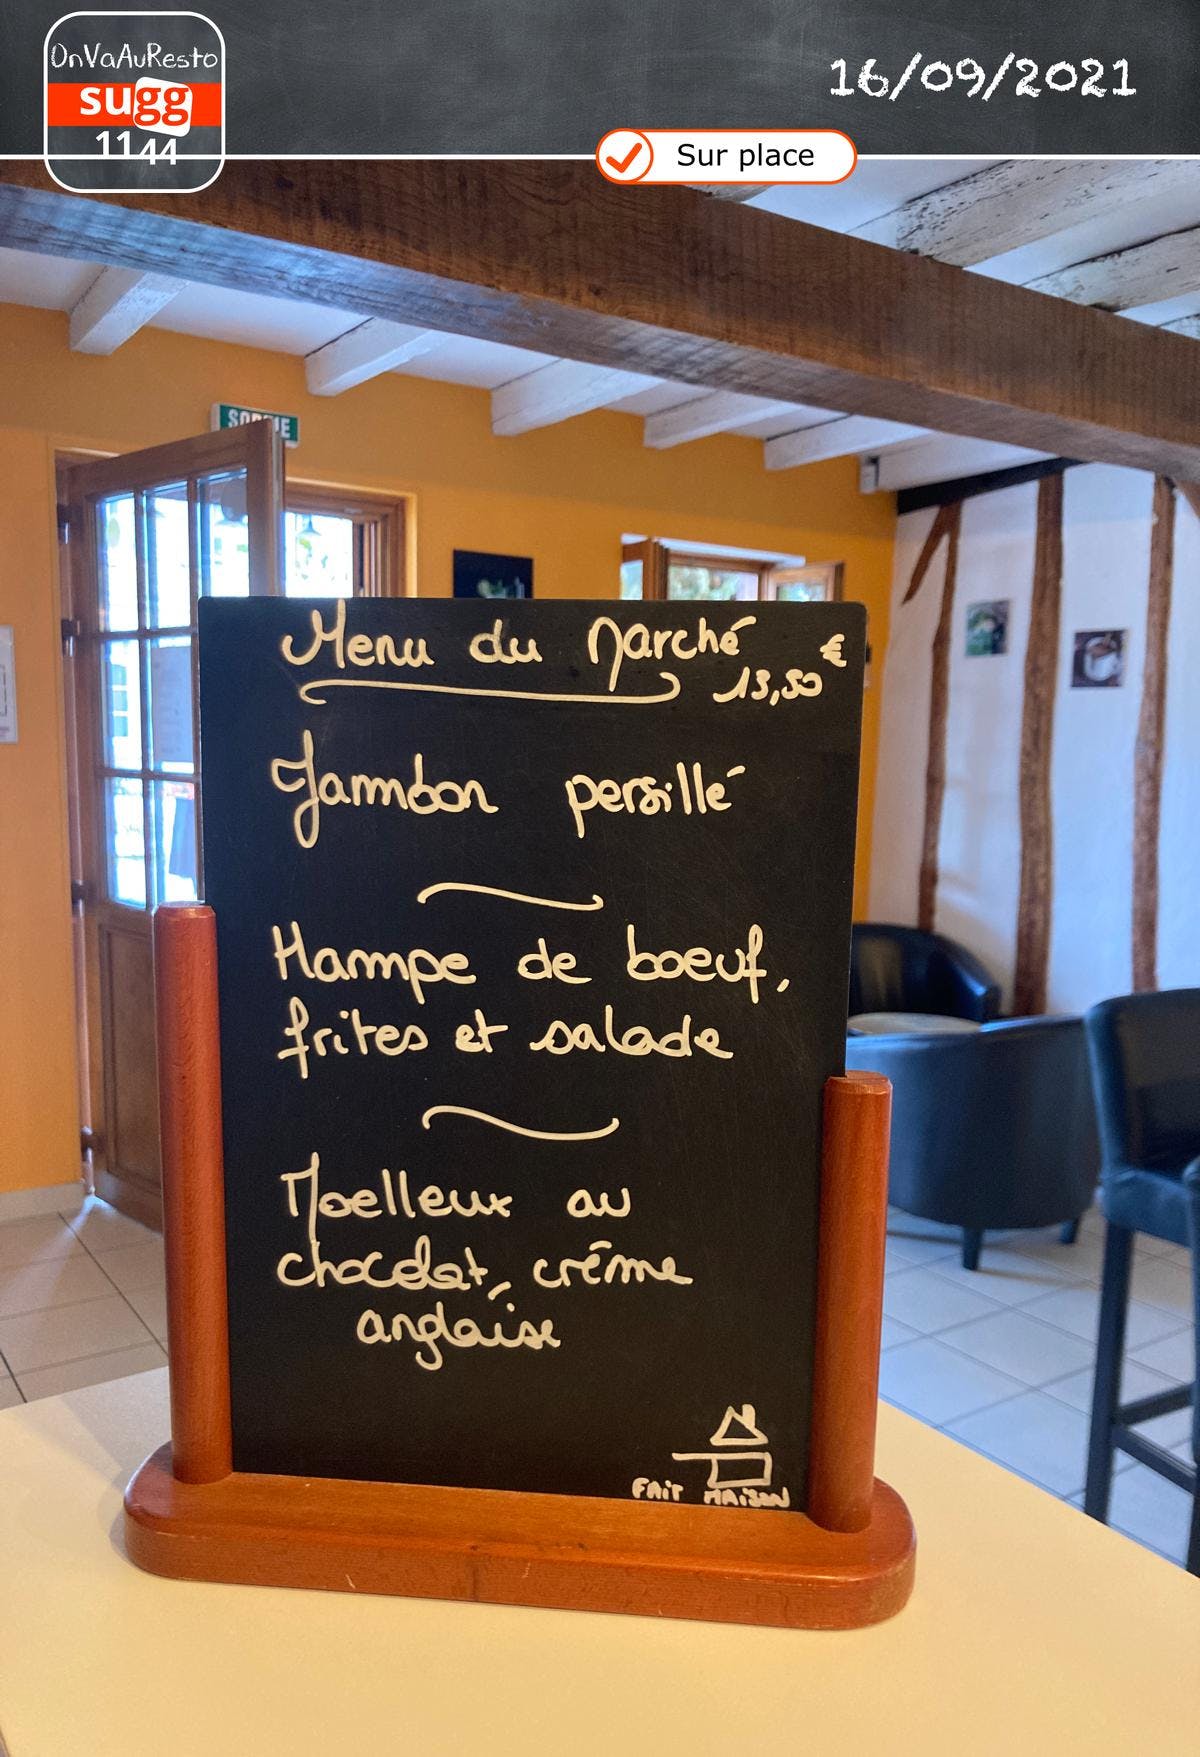 OnVaAuResto
sugg
1144
16/09/2021
Sur place
SORTIE
Menu du Marché €
13,50
Jambon persillé
Hampe de boeuf,
frites et salade
Moelleux au
chocolat, crème
anglaise
FAIT MAISON